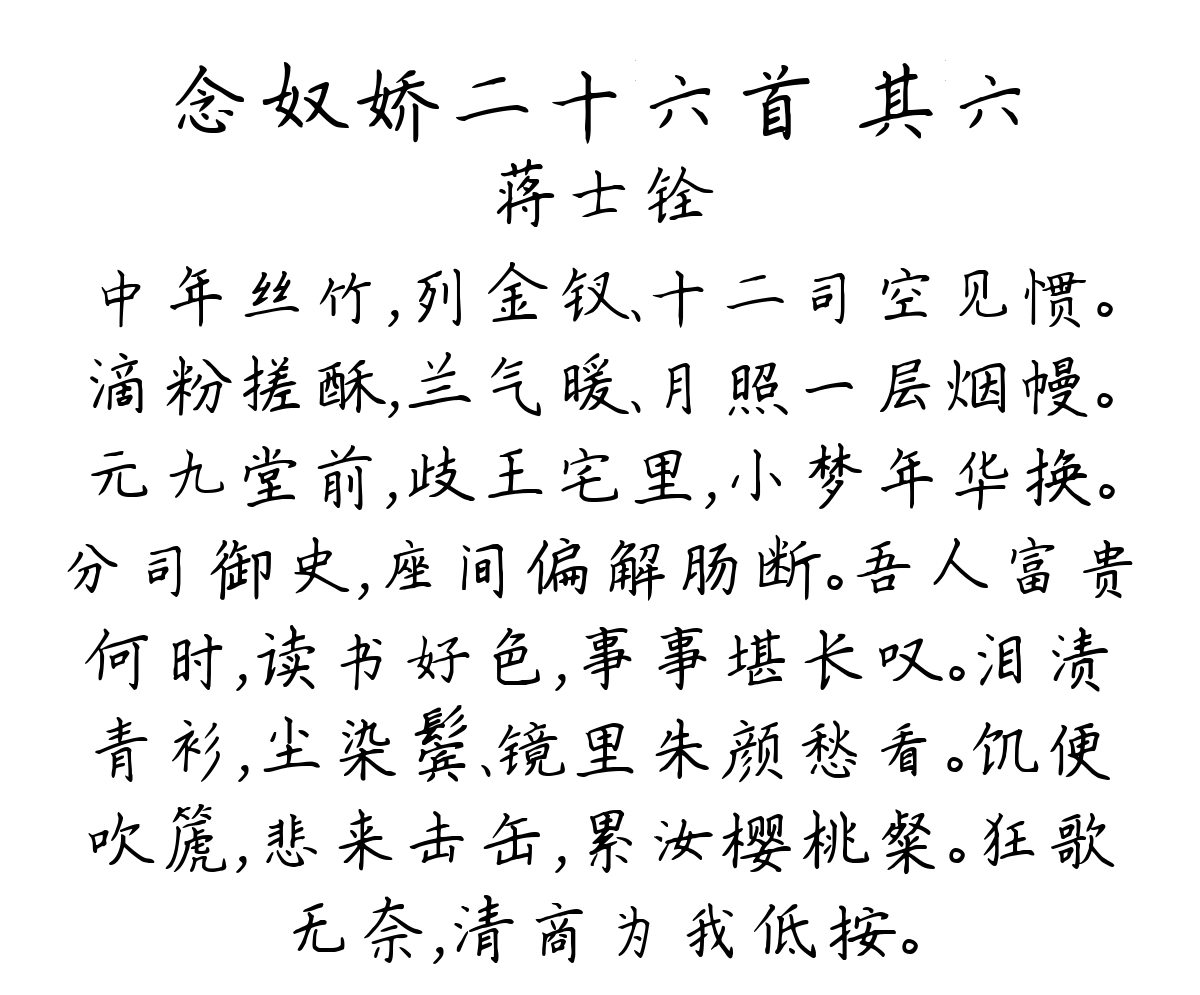 念奴娇二十六首 其六
蒋士铨
中年丝竹,列金钗、十二司空见惯。
滴粉搓酥,兰气暖、月照一层烟幔。
元九堂前,歧王宅里,小梦年华换。
分司御史,座间偏解肠断。吾人富贵
何时,读书好色,事事堪长叹。泪渍
青衫,尘染鬓、镜里朱颜愁看。饥便
吹篪,悲来击缶,累汝樱桃粲。狂歌
无奈,清商为我低按。